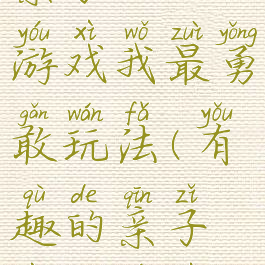 yóu xì wǒ zuì yǒng
游戏我最勇
gǎn wán fǎ yǒu
敢玩法(有
qù de qīn zǐ
趣的亲子